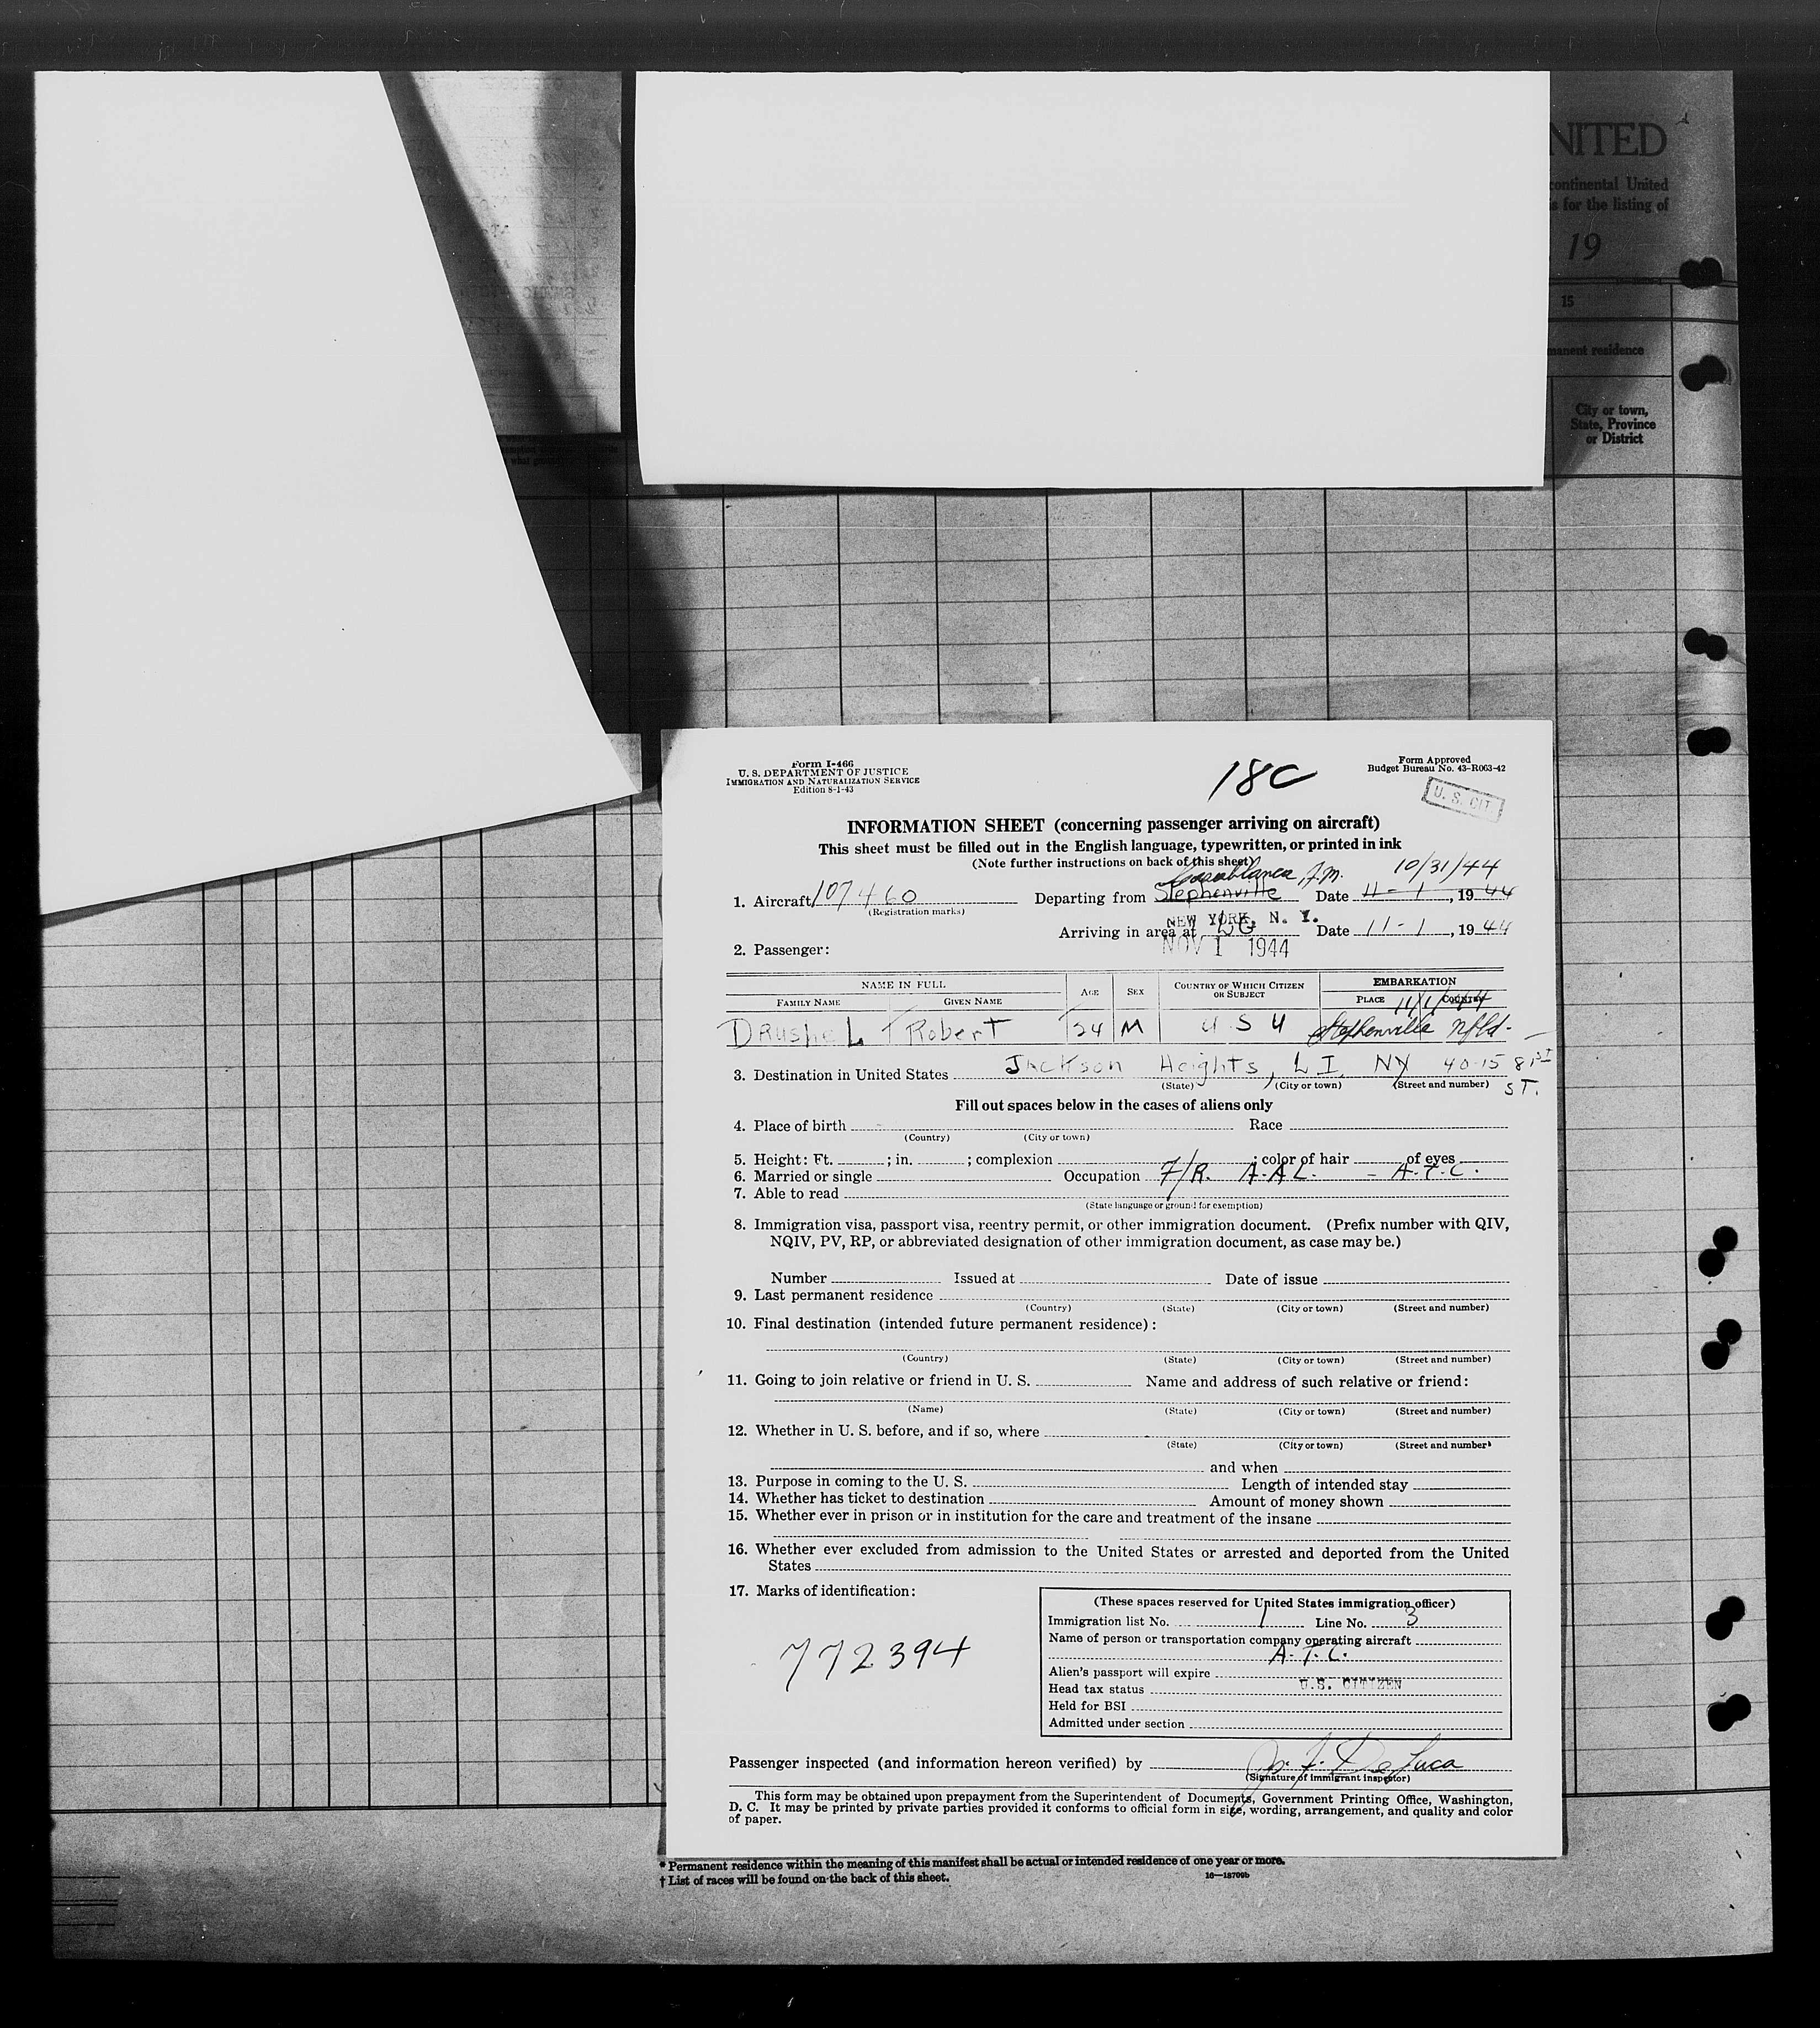 NITED
continental United
s for the listing of
19
15
manent residence
City or town,
State, Province
or District
Form I-466
U. S. DEPARTMENT OF JUSTICE
IMMIGRATION AND NATURALIZATION SERVICE
Edition 8-1-43
18C
Form Approved
Budget Bureau No. 43-R063-42
U. S. CIT.
INFORMATION SHEET (concerning passenger arriving on aircraft)
This sheet must be filled out in the English language, typewritten, or printed in ink
(Note further instructions on back of this sheet)
Casablanca, F.M. 10/31/44
1. Aircraft 107460 Departing from Stephenville Date 11-1, 19 44
(Registration marks)
NEW YORK, N. Y.
Arriving in area at LG Date 11-1, 19 44
NOV 1 1944
2. Passenger:
NAME IN FULL AGE SEX COUNTRY OF WHICH CITIZEN OR SUBJECT EMBARKATION
FAMILY NAME GIVEN NAME PLACE COUNTRY
11/1/44
DRusheL Robert 24 M U S U Stephenville Nfld-
3. Destination in United States Jackson Heights, L I, NY 40-15 81st ST.
(State) (City or town) (Street and number)
Fill out spaces below in the cases of aliens only
4. Place of birth Race
(Country) (City or town)
5. Height: Ft. ; in. ; complexion ; color of hair of eyes
6. Married or single Occupation F/R. A.A.L. - A.T.C.
7. Able to read
(State language or ground for exemption)
8. Immigration visa, passport visa, reentry permit, or other immigration document. (Prefix number with QIV,
NQIV, PV, RP, or abbreviated designation of other immigration document, as case may be.)
Number Issued at Date of issue
9. Last permanent residence
(Country) (State) (City or town) (Street and number)
10. Final destination (intended future permanent residence):
(Country) (State) (City or town) (Street and number)
11. Going to join relative or friend in U. S. Name and address of such relative or friend:
(Name) (State) (City or town) (Street and number)
12. Whether in U. S. before, and if so, where
(State) (City or town) (Street and number)
and when
13. Purpose in coming to the U. S. Length of intended stay
14. Whether has ticket to destination Amount of money shown
15. Whether ever in prison or in institution for the care and treatment of the insane
16. Whether ever excluded from admission to the United States or arrested and deported from the United
States
17. Marks of identification:
772394
(These spaces reserved for United States immigration officer)
Immigration list No. 1 Line No. 3
Name of person or transportation company operating aircraft
A. T. C.
Alien's passport will expire
Head tax status U.S. CITIZEN
Held for BSI
Admitted under section
Passenger inspected (and information hereon verified) by Jos. J. DeLuca
(Signature of immigrant inspector)
This form may be obtained upon prepayment from the Superintendent of Documents, Government Printing Office, Washington,
D. C. It may be printed by private parties provided it conforms to official form in size, wording, arrangement, and quality and color
of paper.
* Permanent residence within the meaning of this manifest shall be actual or intended residence of one year or more.
† List of races will be found on the back of this sheet.
16—18709b